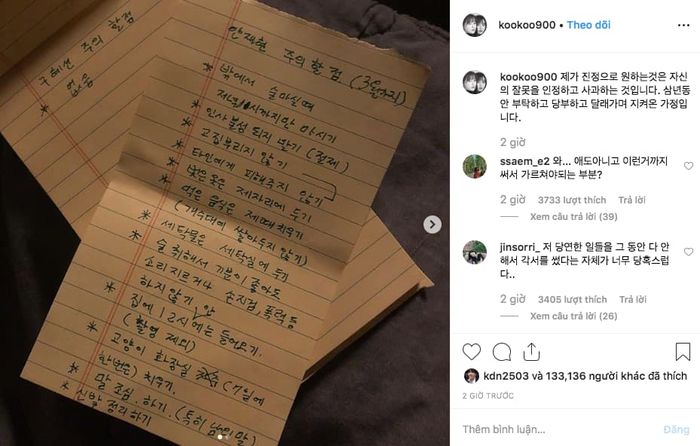 구혜선 주의 할점
* 없음
안재현 주의 할 점.
* 밖에서 술마실때
인사불성 되지 말기 (절제)
* 고집부리지 않기
* 타인에게 피해주지 않기
* 제자리에 두기
* 먹은 음식은 제때 치우기
(개수대에 쌓아두지 않기)
* 세탁물은 세탁실에 두기
* 술 취해서 기분이 좋아도
소리지르거나 손찌검, 폭력 등
하지 않기
* 집에 12시 안에는 들어오기.
(촬영 제외)
* 고양이 화장실 (7일에
한번은) 치우기.
* 말 조심. 하기. (특히 남의 말)
* 신발 정리하기
kookoo900 • Theo dõi
kookoo900 제가 진정으로 원하는것은 자신
의 잘못을 인정하고 사과하는 것입니다. 삼년동
안 부탁하고 당부하고 달래가며 지켜온 가정입
니다.
2 giờ
ssaem_e2 와... 애도아니고 이런거까지
써서 가르쳐야되는 부분?
2 giờ 3733 lượt thích Trả lời
Xem câu trả lời (39)
jinsorri_ 저 당연한 일들을 그 동안 다 안
해서 각서를 썼다는 자체가 너무 당혹스럽
다..
2 giờ 3405 lượt thích Trả lời
Xem câu trả lời (26)
kdn2503 và 133,136 người khác đã thích
2 GIỜ TRƯỚC
Thêm bình luận... Đăng